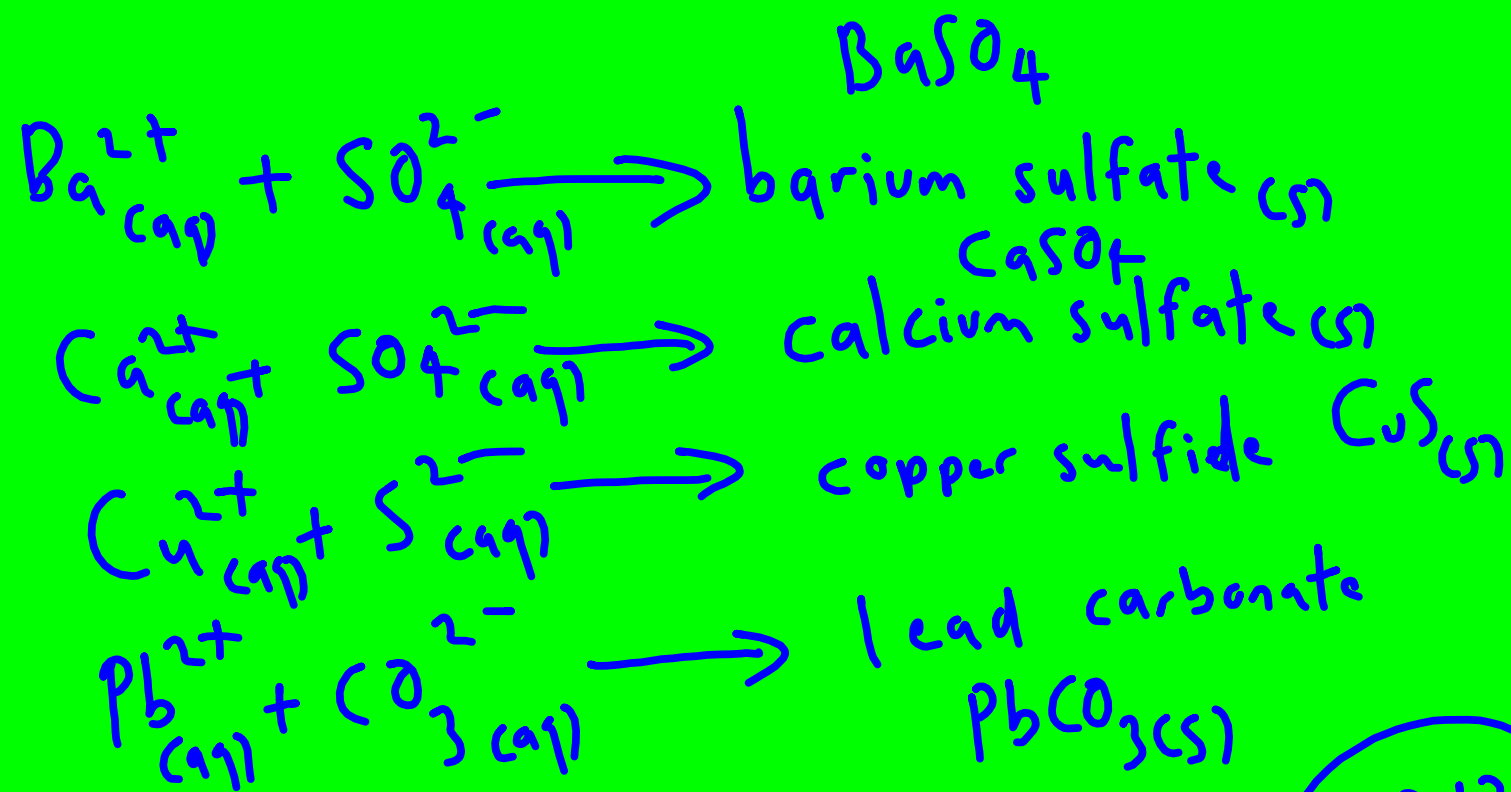 BaSO₄
Ba²⁺(aq) + SO₄²⁻(aq) → barium sulfate(s)
CaSO₄
Ca²⁺(aq) + SO₄²⁻(aq) → calcium sulfate(s)
Cu²⁺(aq) + S²⁻(aq) → copper sulfide CuS(s)
Pb²⁺(aq) + CO₃²⁻(aq) → lead carbonate
PbCO₃(s)